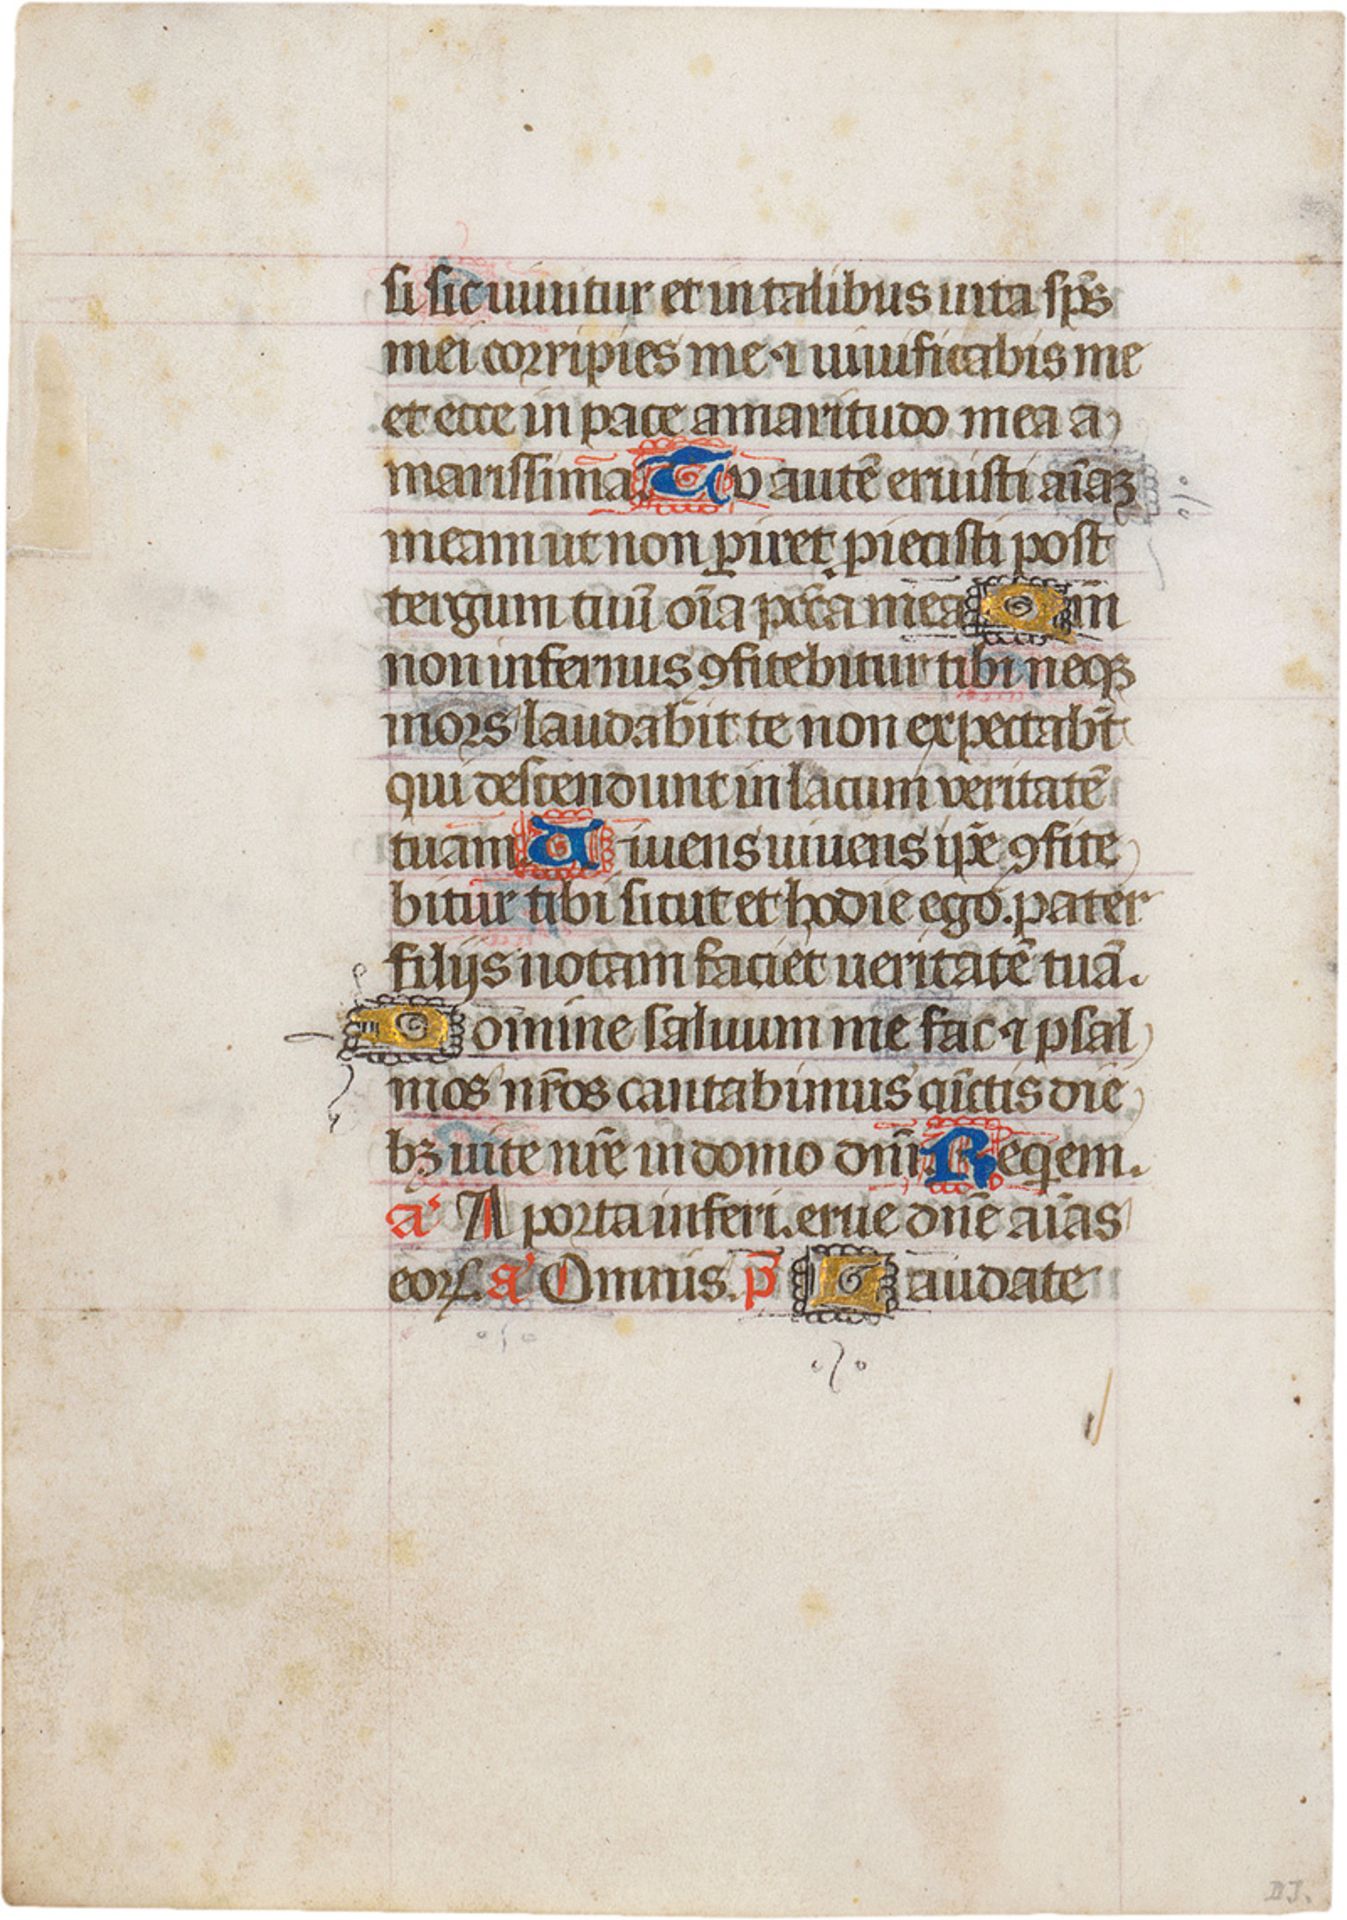 si sic uiuitur et in talibus uita sp̄s
mei corripies me ⁊ uiuificabis me
et ecce in pace amaritudo mea a
marissima. Tu autē eruisti aīaꝫ
meam ut non ꝑiret ꝓiecisti post
tergum tuū oīa pc̄ca mea Qm̄
non infernus ꝯfitebitur tibi neqꝫ
mors laudabit te non expectabt̄
qui descendunt in lacum veritatē
tuam. Uiuens uiuens ip̄e ꝯfite
bitur tibi sicut et hodie ego. pater
filijs notam faciet ueritatē tuā.
Domine saluum me fac ⁊ psal
mos nr̄os cantabimus cūctis die
bꝫ uite nr̄e in domo dn̄i. Reqͥem.
a' A porta inferi. erue dn̄e aīas
eoꝝ. a' Omnis. p̄ Laudate
DJ.